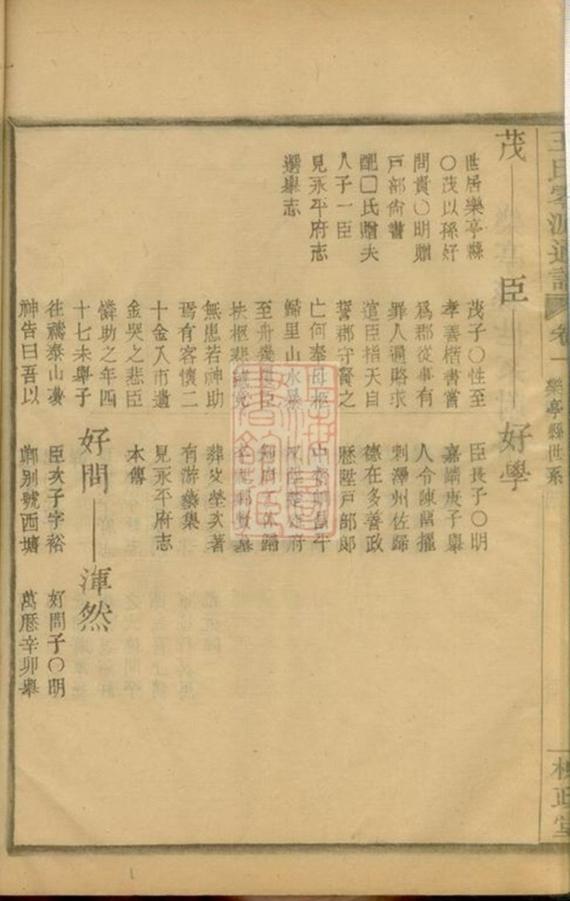 王氏 通譜 卷一 樂亭縣世系
茂——臣——好學
世居樂亭縣
〇茂以孫好
問貴〇明贈
戶部尚書
配口氏贈夫
人子一臣
見永平府志
選舉志
茂子〇性至
孝善楷書嘗
爲郡從事有
罪人遇賂求
道臣指天自
誓郡守賢之
亡何奉母柩
歸里山水暴
至舟
扶柩悲號
無患若神助
焉有客懷二
十金入市遺
金哭之悲臣
憐助之年四
十七未舉子
往禱泰山
神告曰吾以
臣長子〇明
嘉靖庚子舉
人令陳留擢
刺澤州佐歸
德在多善政
歷陞戶部郎
中
府
歸
墓
葬 次著
有游藝集
見永平府志
本傳
好問——渾然
臣次子字裕
卿别號西塘
好問子〇明
萬曆辛卯舉
楨政堂